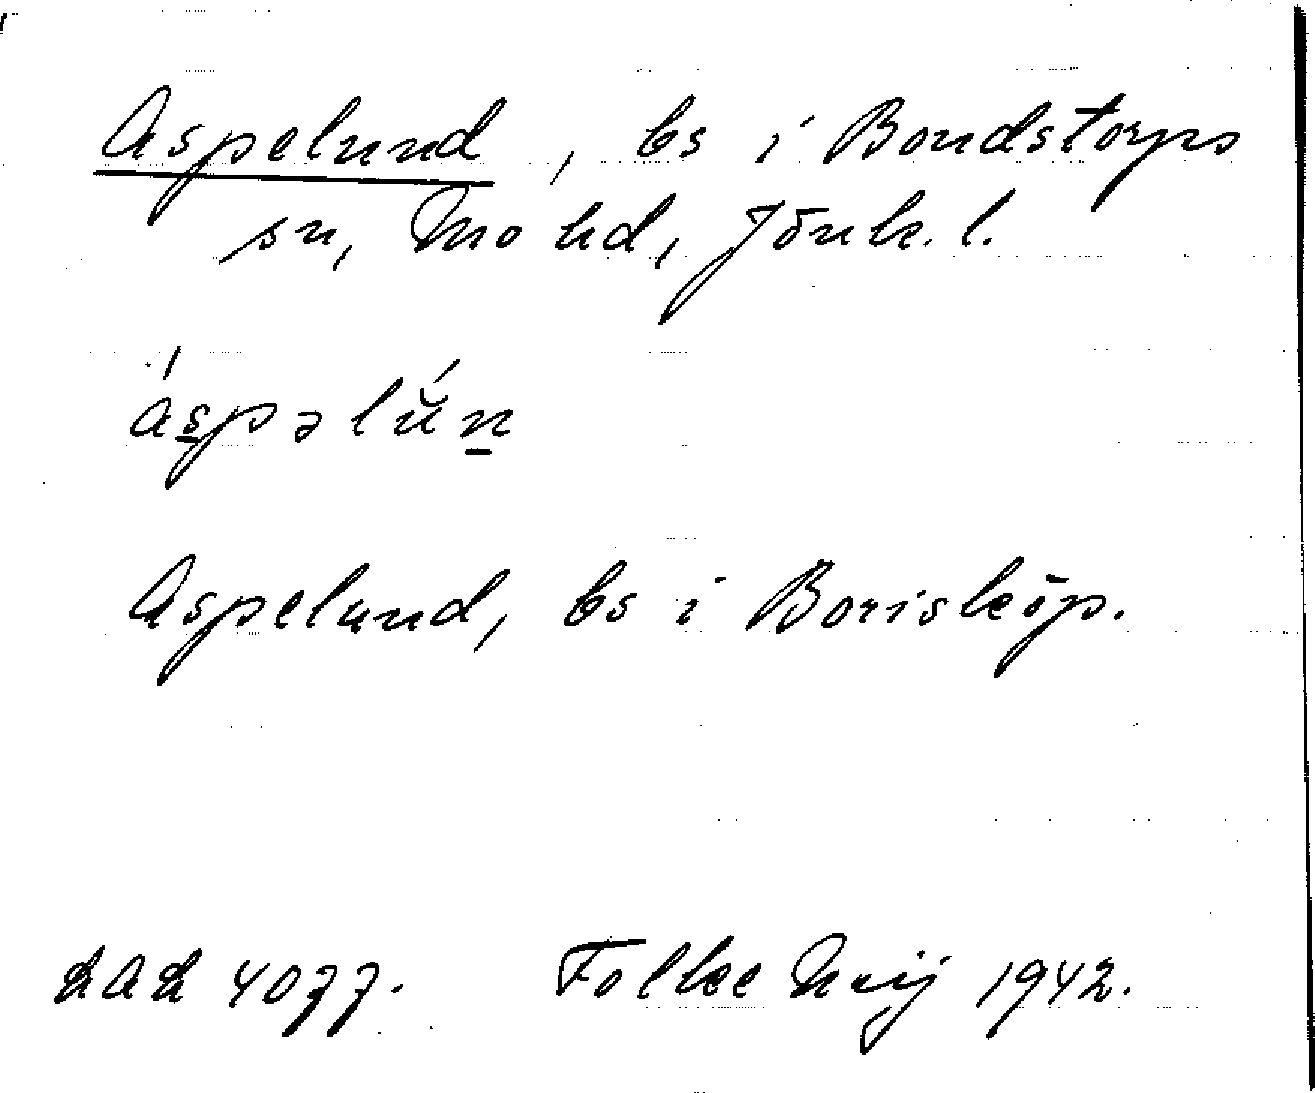 Aspelund, bs i Bondstorps
sn, Mo hd, Jönk. l.
áspəlŭ́n
Aspelund, bs i Borisköp.
LAL 4077. Folke Heij 1942.